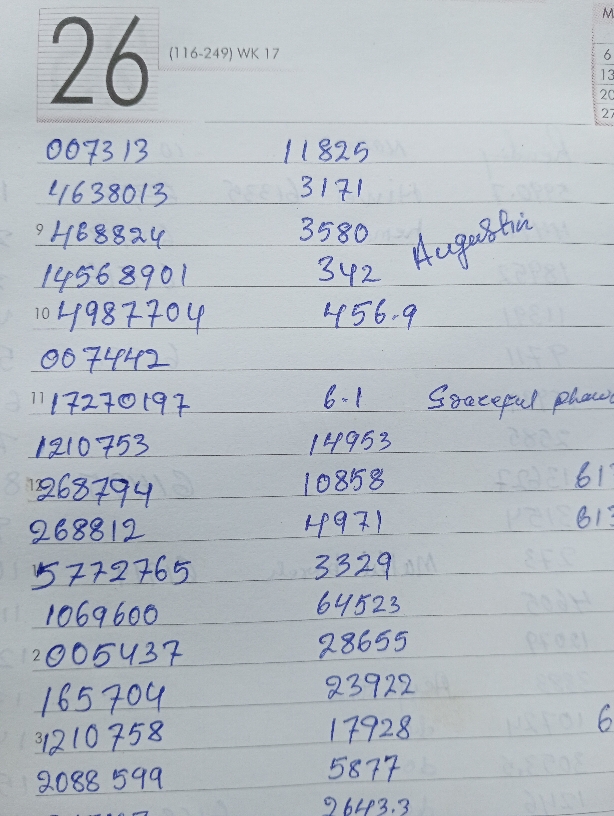 26 (116-249) WK 17 M
6
13
20
27
007313 11825
4638013 3171
9 468824 3580 Augustin
14568901 342
10 4987704 456.9
007442
11 17270197 6.1
1210753 14953
12 268794 10858 61
268812 4971 613
5772765 3329
1069600 64523
2 005437 28655
165704 23922
3 1210758 17928 6
2088599 5877
2643.3